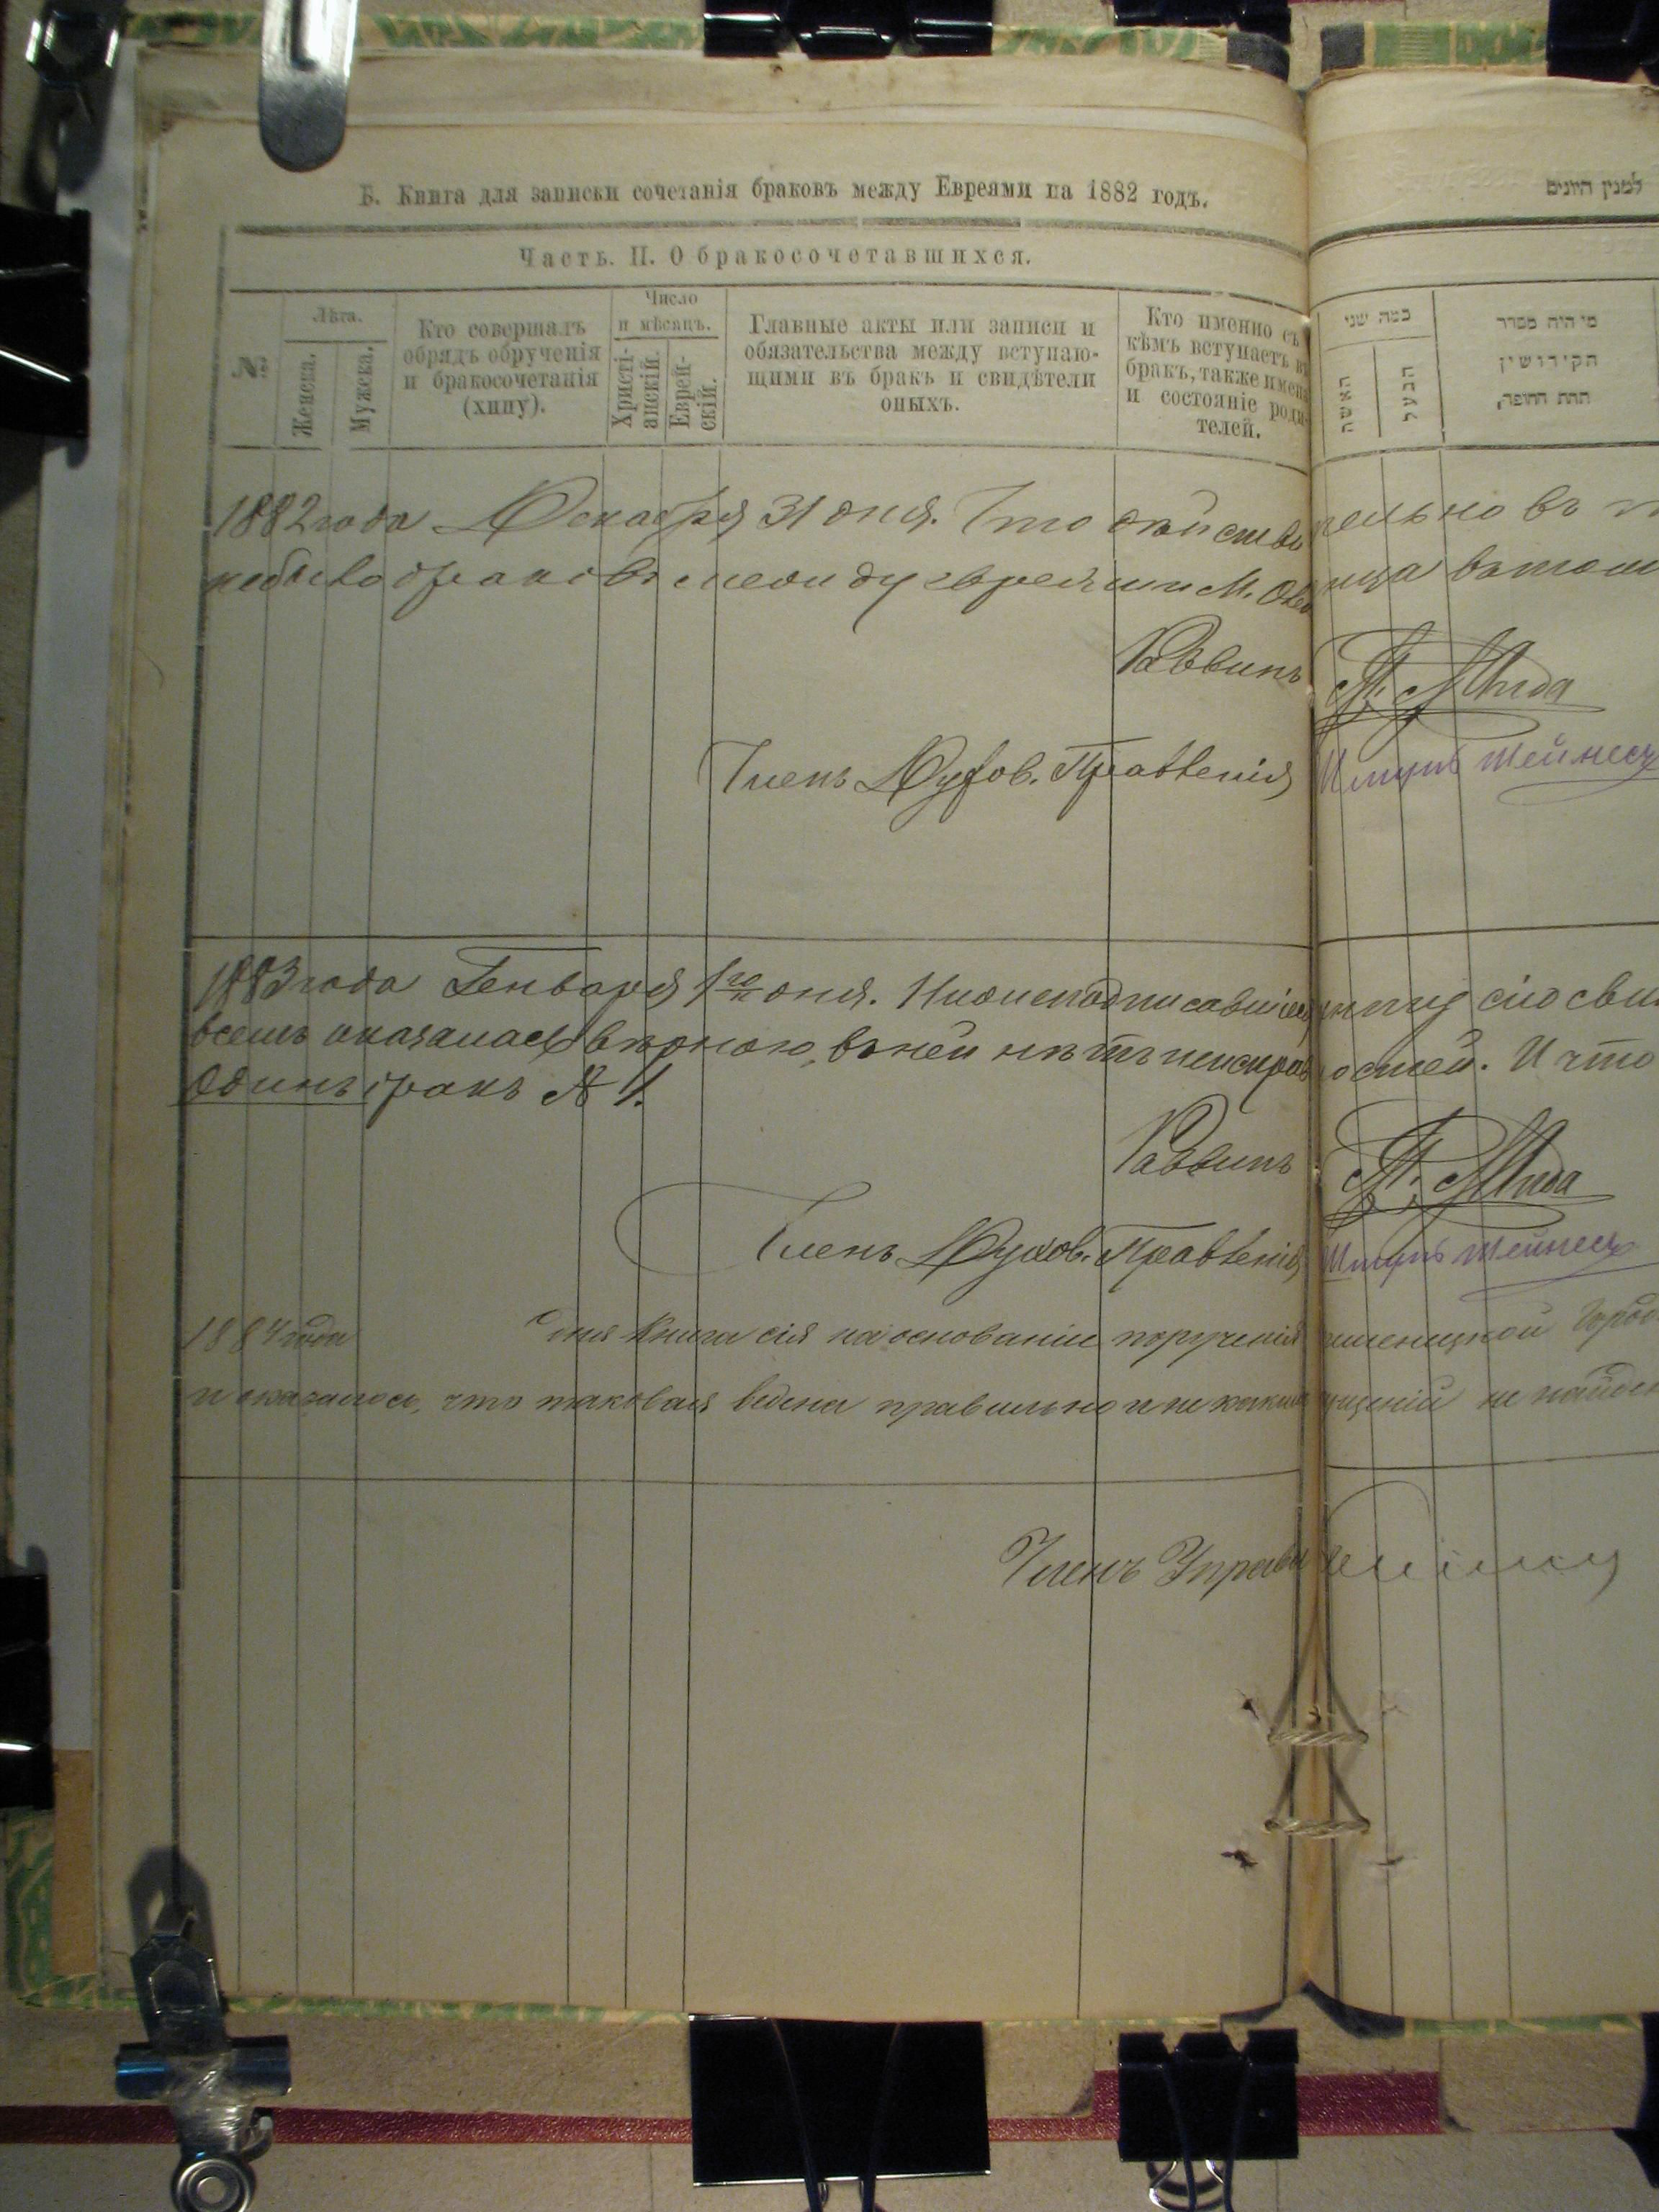 Б. Книга для записки сочетанія браковъ между Евреями на 1882 годъ.
למנין היונים
Часть. II. О бракосочетавшихся.
№
Лѣта.
Женска.
Мужска.
Кто совершалъ
обрядъ обрученія
и бракосочетанія
(хипу).
Число
и мѣсяцъ.
Христі-
анскій.
Еврей-
скій.
Главные акты или записи и
обязательства между вступаю-
щими въ бракъ и свидѣтели
оныхъ.
Кто именно съ
кѣмъ вступаетъ въ
бракъ, также имена
и состояніе роди-
телей.
כמה שני
האשה
הבעל
מי היה מסדר
הקידושין
תחת החופה,
1882 года Декабря 31 дня. Что дѣйстви тельно въ
небыло браковъ между евреями М. въ томъ
Раввинъ
Членъ Духов. Правленія
1883 года Генваря 1го дня. Нижеподписавшіеся сію
всемъ оказалась вѣрною, въ ней нѣтъ неисправ ностей. И что
Одинъ бракъ № 1.
Раввинъ
Членъ Духов. Правленія
1884 года дня Книга сія на основаніи порученія Город
и оказалось, что таковая ведена правильно и не
Членъ Управы